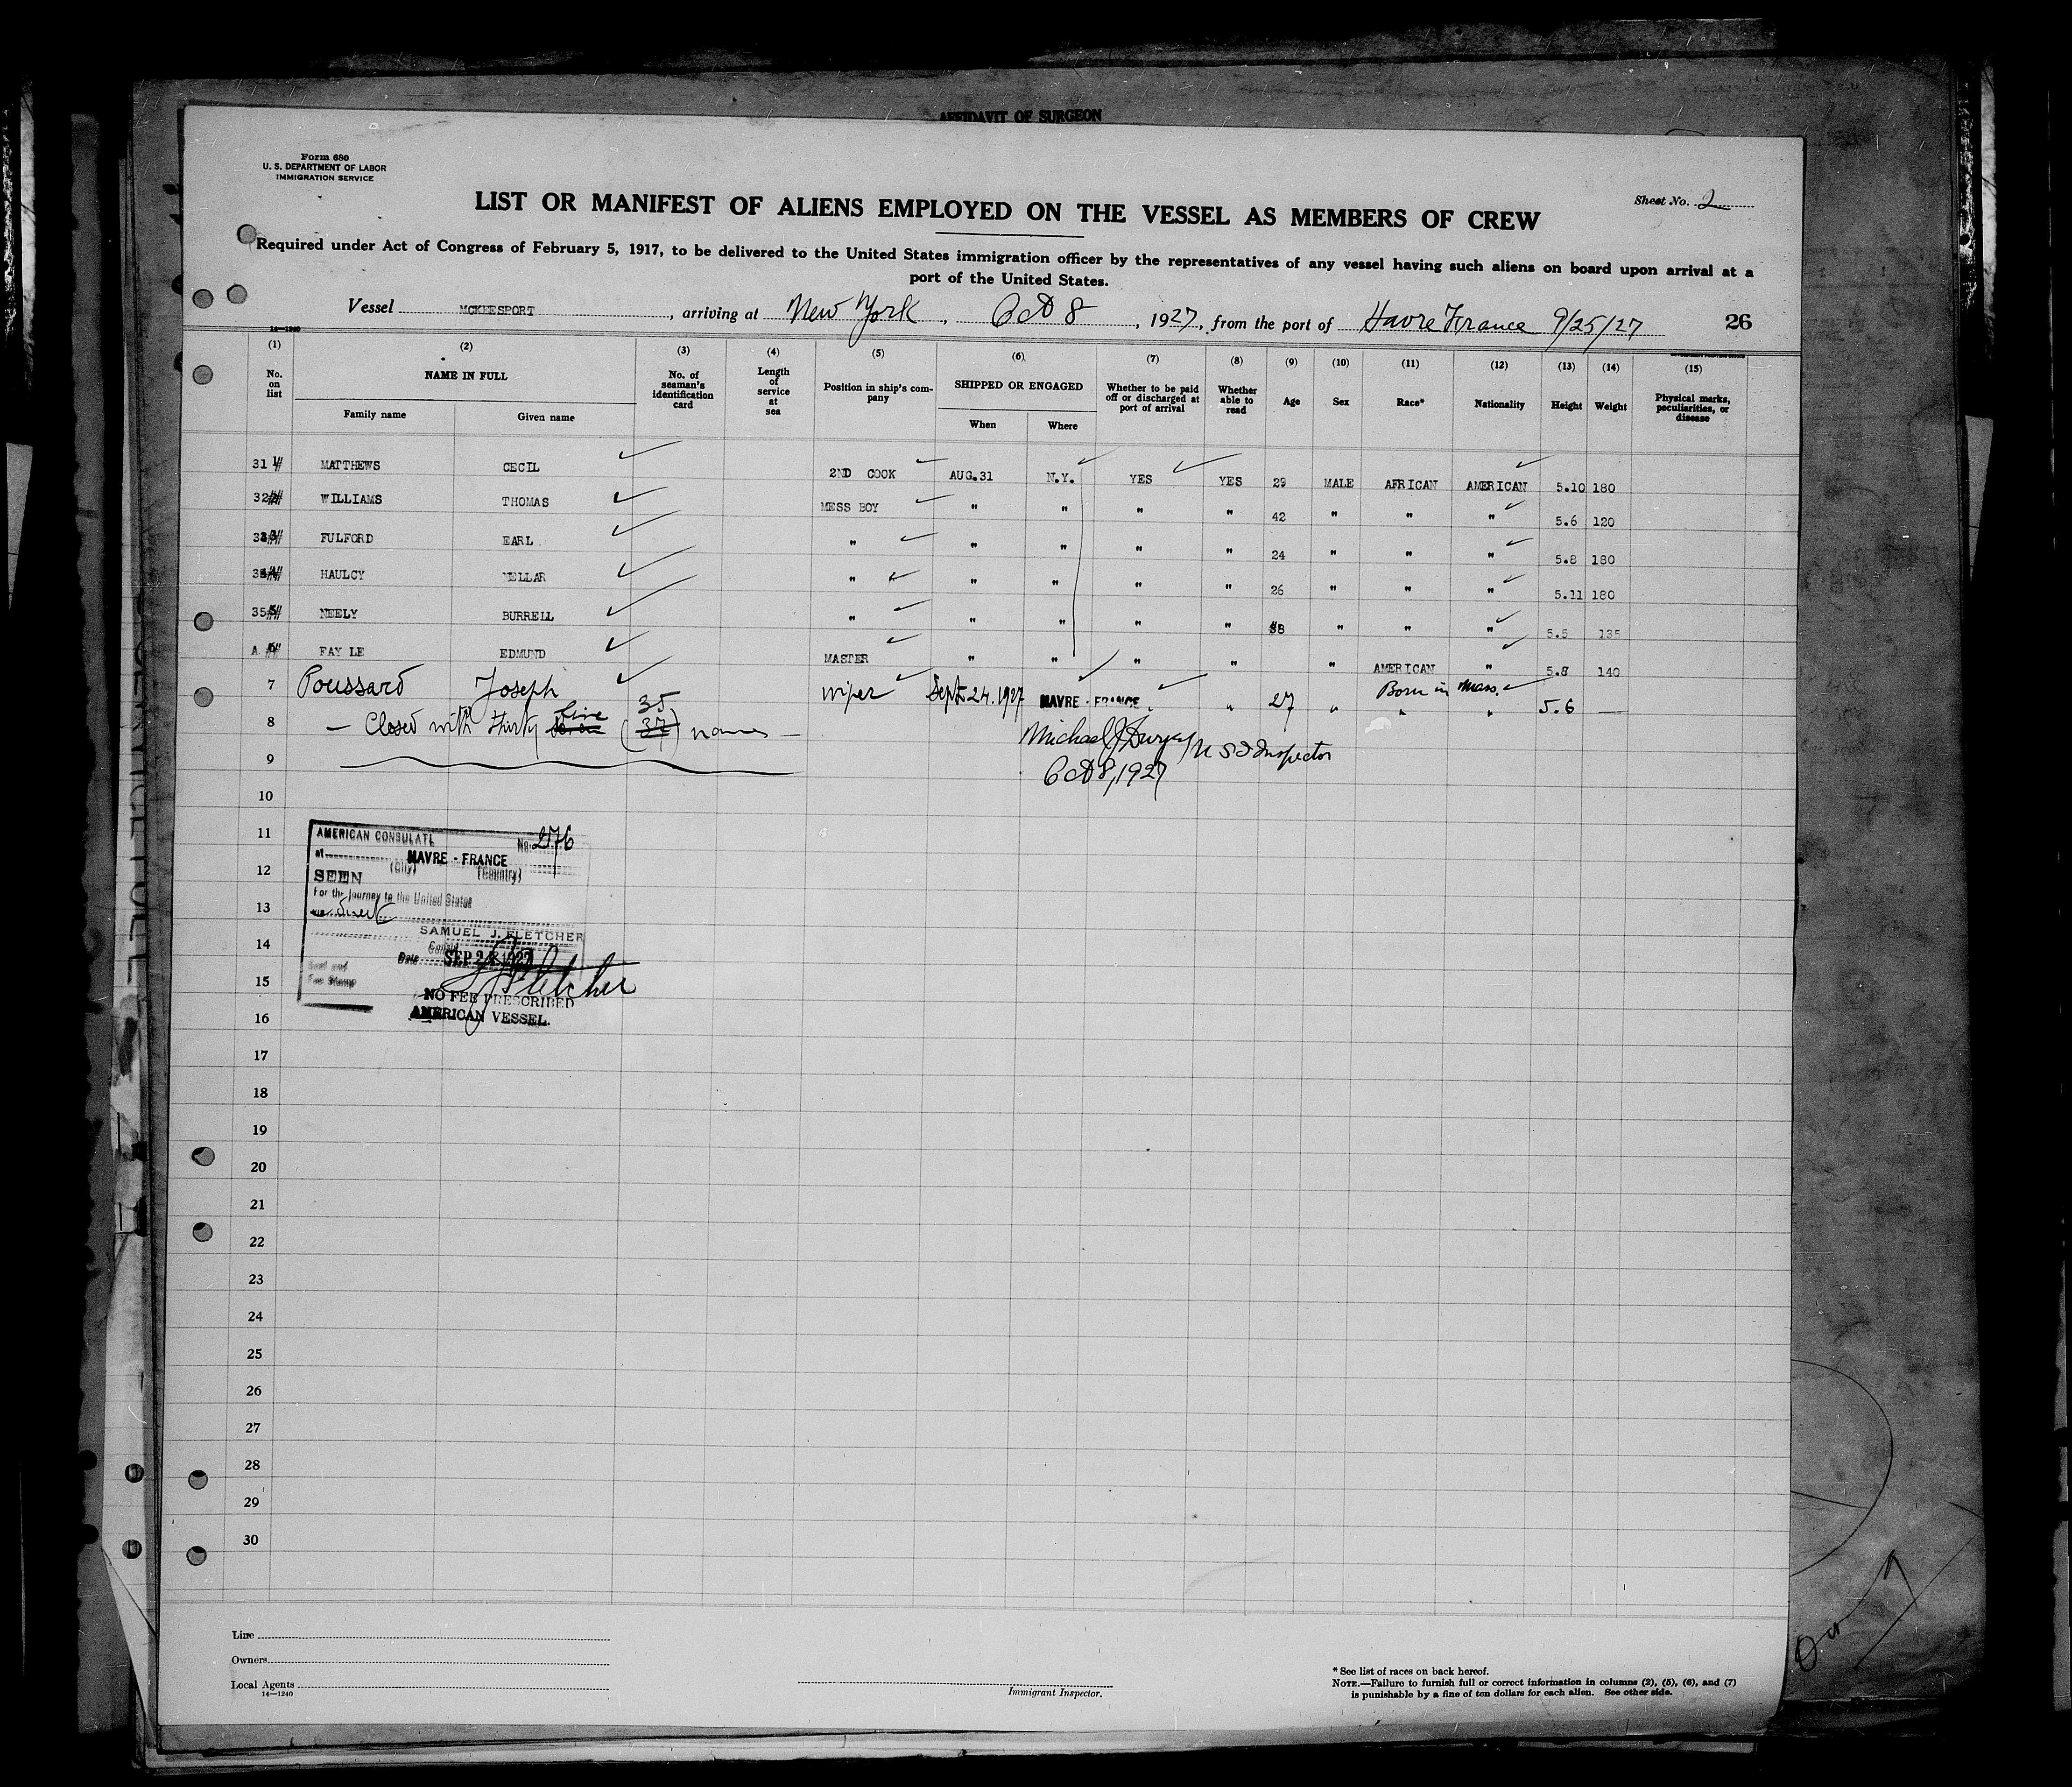 AFFIDAVIT OF SURGEON
Form 680
U. S. DEPARTMENT OF LABOR
IMMIGRATION SERVICE
Sheet No. 2
LIST OR MANIFEST OF ALIENS EMPLOYED ON THE VESSEL AS MEMBERS OF CREW
Required under Act of Congress of February 5, 1917, to be delivered to the United States immigration officer by the representatives of any vessel having such aliens on board upon arrival at a
port of the United States.
Vessel MCKEESPORT, arriving at New York, Oct 8, 1927, from the port of Havre France 9/25/27 26
14—1240
(1) (2) (3) (4) (5) (6) (7) (8) (9) (10) (11) (12) (13) (14) (15)
No. on list NAME IN FULL No. of seaman's identification card Length of service at sea Position in ship's company SHIPPED OR ENGAGED Whether to be paid off or discharged at port of arrival Whether able to read Age Sex Race* Nationality Height Weight Physical marks, peculiarities, or disease
Family name Given name When Where
31 MATTHEWS CECIL 2ND COOK AUG.31 N.Y. YES YES 29 MALE AFRICAN AMERICAN 5.10 180
32 WILLIAMS THOMAS MESS BOY " " " " 42 " " " 5.6 120
33 FULFORD EARL " " " " " 24 " " " 5.8 180
34 HAULCY " " " " " 26 " " " 5.11 180
35 NEELY BURRELL " " " " " 38 " " " 5.5 135
A FAY LE EDMUND MASTER " " " " " AMERICAN " 5.8 140
7 Poussard Joseph Wiper Sept 24. 1927 HAVRE - FRANCE " " 27 " Born in Mass. " " 5.6 —
8 — Closed with thirty five (37) 35 names —
Michael J. U S I Inspector
9 Oct 8, 1927
10
11
AMERICAN CONSULATE No. 276
at HAVRE - FRANCE
(City) (Country)
12
SEEN
For the journey to the United States
13
via direct
SAMUEL J. FLETCHER
14
Consul
Date SEP 24 1927
S J Fletcher
Seal and
Fee Stamp
15
NO FEE PRESCRIBED
AMERICAN VESSEL.
16
17
18
19
20
21
22
23
24
25
26
27
28
29
30
Line
Owners
Local Agents
14—1240
Immigrant Inspector.
* See list of races on back hereof.
NOTE.—Failure to furnish full or correct information in columns (2), (5), (6), and (7)
is punishable by a fine of ten dollars for each alien. See other side.